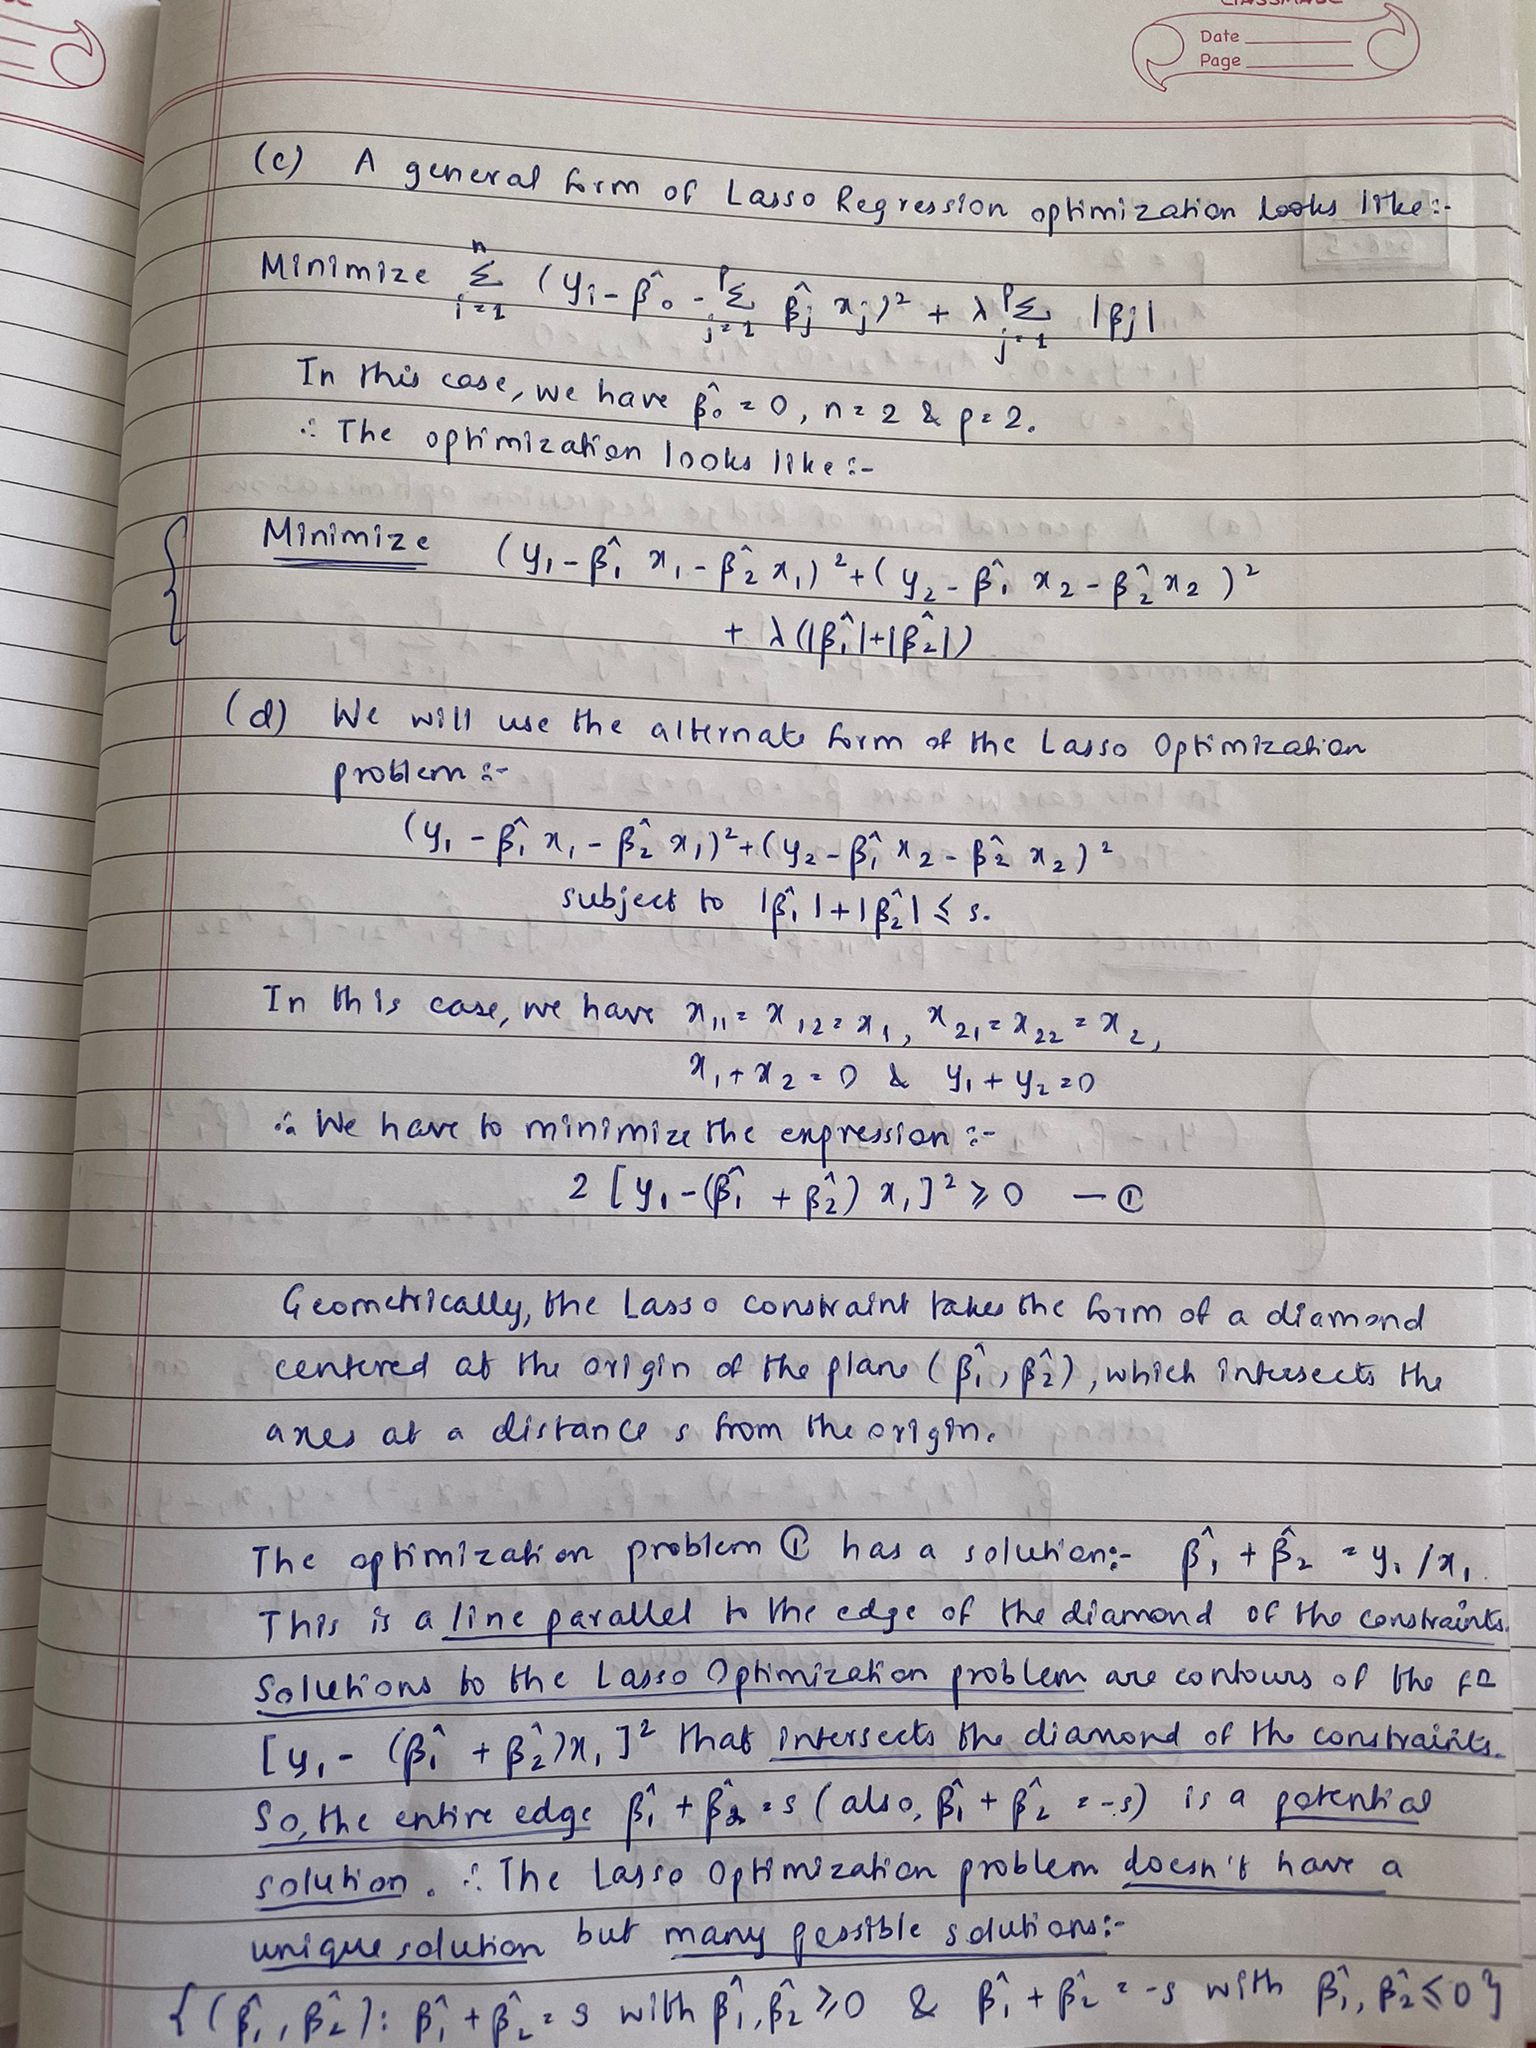 CLASSMATE
Date
Page
(c) A general form of Lasso Regression optimization looks like:-
Minimize n Σ i=1 (yi - β̂0 - p Σ j=1 β̂j xj)² + λ p Σ j=1 |βj|
In this case, we have β̂0 = 0, n = 2 & p = 2.
∴ The optimization looks like :-
Minimize (y1 - β̂1 x1 - β̂2 x1)² + (y2 - β̂1 x2 - β̂2 x2)²
+ λ(|β̂1|+|β̂2|)
(d) We will use the alternate form of the Lasso Optimization
problem :-
(y1 - β̂1 x1 - β̂2 x1)² + (y2 - β̂1 x2 - β̂2 x2)²
subject to |β̂1|+|β̂2| ≤ s.
In this case, we have x11 = x12 = x1, x21 = x22 = x2,
x1 + x2 = 0 & y1 + y2 = 0
∴ We have to minimize the expression :-
2 [y1 - (β̂1 + β̂2) x1]² ≥ 0 — ①
Geometrically, the Lasso constraint takes the form of a diamond
centered at the origin of the plane (β̂1, β̂2), which intersects the
axes at a distance s from the origin.
The optimization problem ① has a solution:- β̂1 + β̂2 = y1/x1.
This is a line parallel to the edge of the diamond of the constraints.
Solutions to the Lasso Optimization problem are contours of the fn
[y1 - (β̂1 + β̂2)x1]² that intersects the diamond of the constraints.
So, the entire edge β̂1 + β̂2 = s (also, β̂1 + β̂2 = -s) is a potential
solution. ∴ The Lasso Optimization problem doesn't have a
unique solution but many possible solutions:-
{(β̂1, β̂2): β̂1 + β̂2 = s with β̂1, β̂2 ≥ 0 & β̂1 + β̂2 = -s with β̂1, β̂2 ≤ 0}